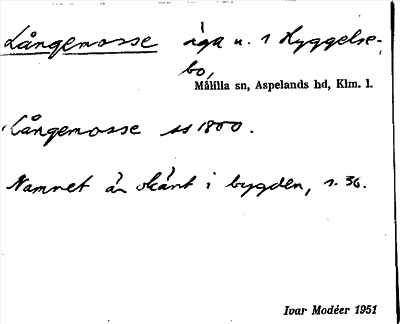 Långemosse äga u. 1 Hyggelse-
bo,
Målilla sn, Aspelands hd, Klm. l.
Långemosse ss 1800.
Namnet är känt i bygden, s. 36.
Ivar Modéer 1951